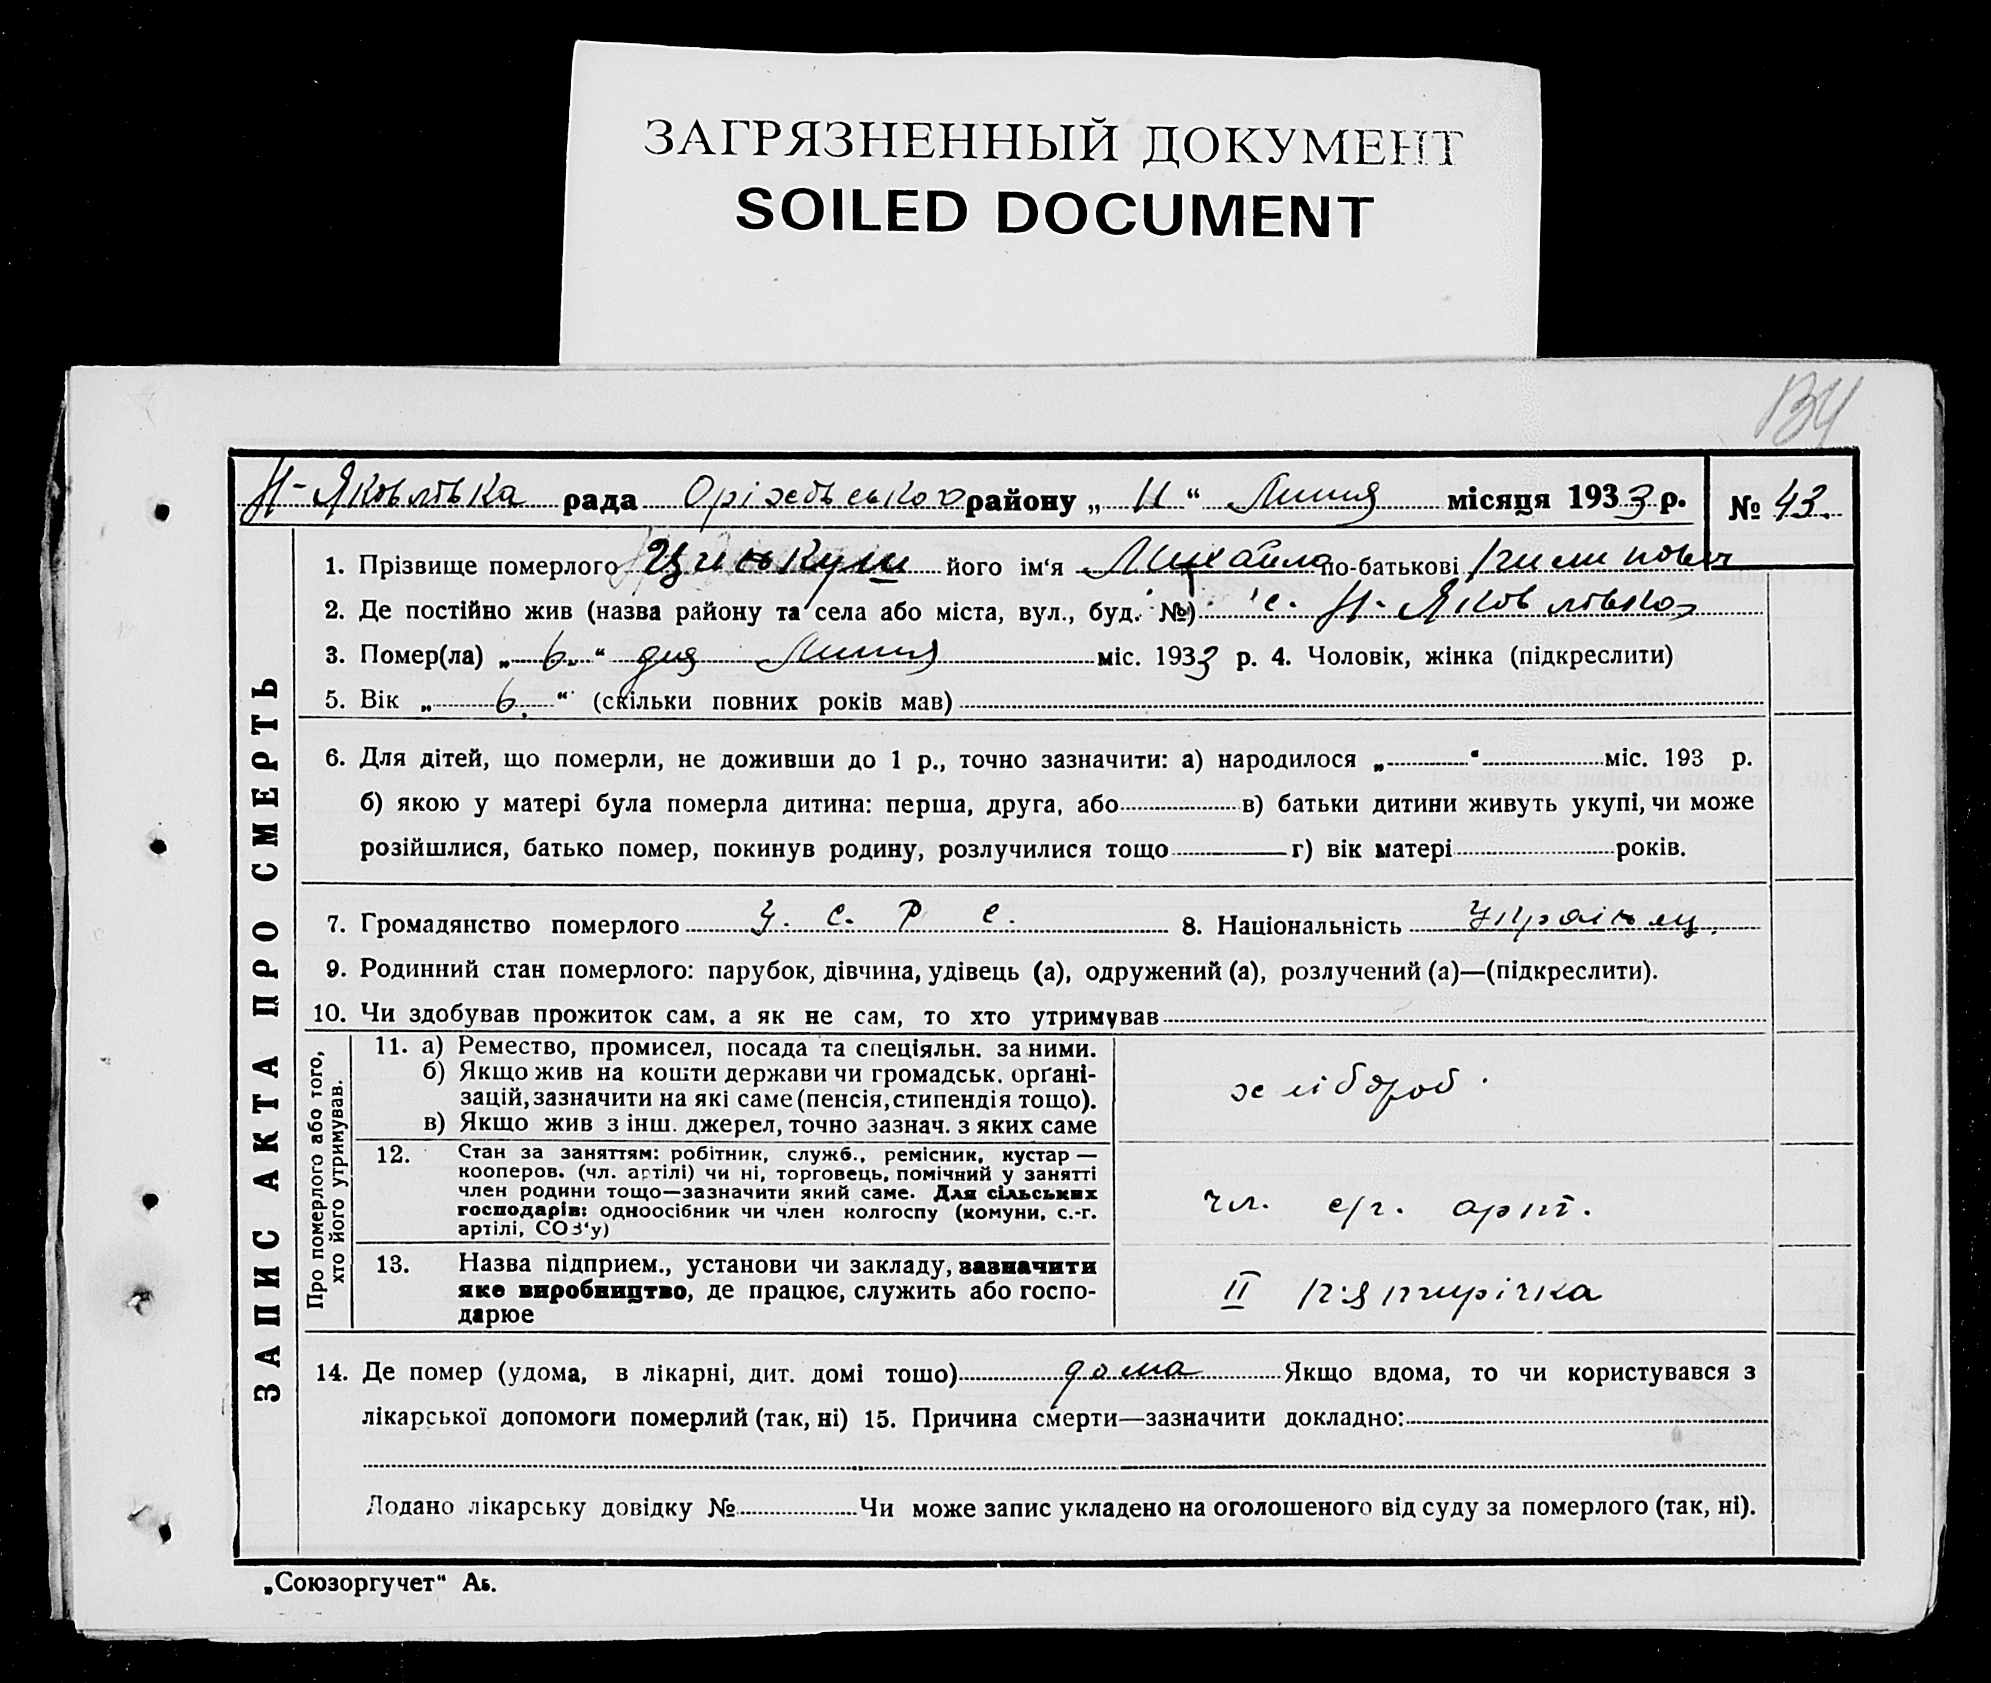 ЗАГРЯЗНЕННЫЙ ДОКУМЕНТ
SOILED DOCUMENT
134
Н-Яковлівка рада Оріхівського району „ 11 “ Липня місяця 1933 р. № 43.
ЗАПИС АКТА ПРО СМЕРТЬ
1. Прізвище померлого його ім‘я Михайло по-батькові
2. Де постійно жив (назва району та села або міста, вул., буд. №) с. Н-Яковлівка
3. Помер(ла) „ 6 “ дня Липня міс. 1933 р. 4. Чоловік, жінка (підкреслити)
5. Вік „ 6 “ (скільки повних років мав)
6. Для дітей, що померли, не доживши до 1 р., точно зазначити: а) народилося „ “ міс. 193 р.
б) якою у матері була померла дитина: перша, друга, або в) батьки дитини живуть укупі, чи може
розійшлися, батько помер, покинув родину, розлучилися тощо г) вік матері років.
7. Громадянство померлого У. С. Р. С. 8. Національність Украінец.
9. Родинний стан померлого: парубок, дівчина, удівець (а), одружений (а), розлучений (а)—(підкреслити).
10. Чи здобував прожиток сам, а як не сам, то хто утримував
Про померлого або того,
хто його утримував.
11. а) Ремество, промисел, посада та спеціяльн. за ними.
б) Якщо жив на кошти держави чи громадськ. орґані-
зацій, зазначити на які саме (пенсія, стипендія тощо).
в) Якщо жив з інш. джерел, точно зазнач. з яких саме
хлібороб.
12. Стан за заняттям: робітник, служб., ремісник, кустар —
кооперов. (чл. артілі) чи ні, торговець, помічний у занятті
член родини тощо—зазначити який саме. Для сільських
господарів: одноосібник чи член колгоспу (комуни, с.-г.
артілі, СОЗ‘у)
чл. с/г. арт.
13. Назва підприєм., установи чи закладу, зазначити
яке виробництво, де працює, служить або госпо-
дарює
ІІ п'ятирічка
14. Де помер (удома, в лікарні, дит. домі тощо) дома Якщо вдома, то чи користувався з
лікарської допомоги померлий (так, ні) 15. Причина смерти—зазначити докладно:
Додано лікарську довідку № Чи може запис укладено на оголошеного від суду за померлого (так, ні).
„Союзоргучет“ Аь.